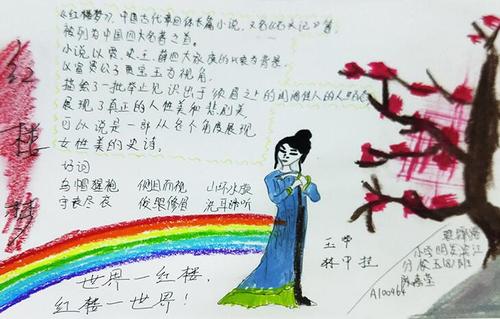 红楼梦
《红楼梦》，中国古代章回体长篇小说，又名《石头记》等，
被列为中国四大名著之首。
小说以贾、史、王、薛四大家族的兴衰为背景，
以富贵公子贾宝玉为视角，
描绘了一批举止见识出于须眉之上的闺阁佳人的人生百态
展现了真正的人性美和悲剧美
可以说是一部从各个角度展现
女性美的史诗。
好词
乌帽猩袍 侧目而视 山环水旋
守丧尽衣 俊架修眉 洗耳聆听
世界一红楼，
红楼一世界！
五带
林中挂
小学明英滨江
分校五(8)班
A100464